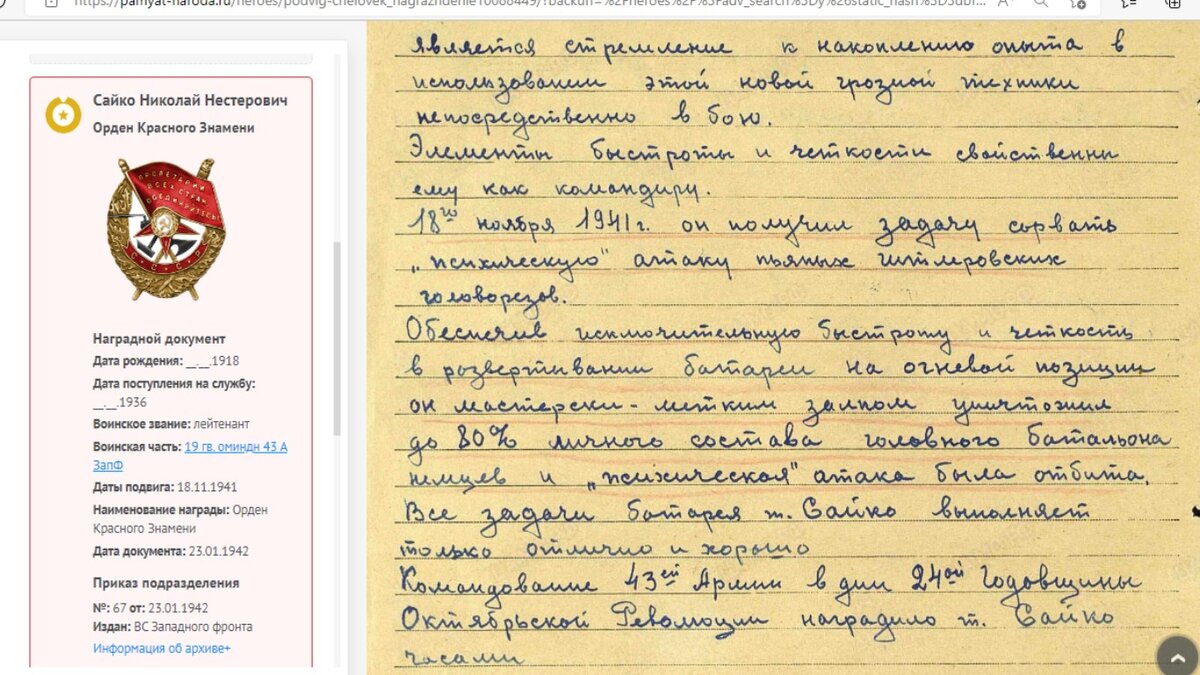 https://pamyat-naroda.ru/heroes/podvig-chelovek_nagrazhdenie10088449/?backurl=%2Fheroes%2F%3Fadv_search%3Dy%26static_hash%3D3dbf...
Сайко Николай Нестерович
Орден Красного Знамени
ПРОЛЕТАРИИ
ВСЕХ СТРАН
СОЕДИНЯЙТЕСЬ!
С С С Р
Наградной документ
Дата рождения: __.__.1918
Дата поступления на службу:
__.__.1936
Воинское звание: лейтенант
Воинская часть: 19 гв. оминдн 43 А
ЗапФ
Даты подвига: 18.11.1941
Наименование награды: Орден
Красного Знамени
Дата документа: 23.01.1942
Приказ подразделения
№: 67 от: 23.01.1942
Издан: ВС Западного фронта
Информация об архиве+
является стремление к накоплению опыта в
использовании этой новой грозной техники
непосредственно в бою.
Элементы быстроты и четкости свойственны
ему как командиру.
18го ноября 1941 г. он получил задачу сорвать
„психическую" атаку пьяных гитлеровских
головорезов.
Обеспечив исключительную быстроту и четкость
в развертывании батареи на огневой позиции
он мастерски - метким залпом уничтожил
до 80% личного состава головного батальона
немцев и „психическая" атака была отбита.
Все задачи батарея т. Сайко выполняет
только отлично и хорошо
Командование 43ей Армии в дни 24ой Годовщины
Октябрьской Революции наградило т. Сайко
часами